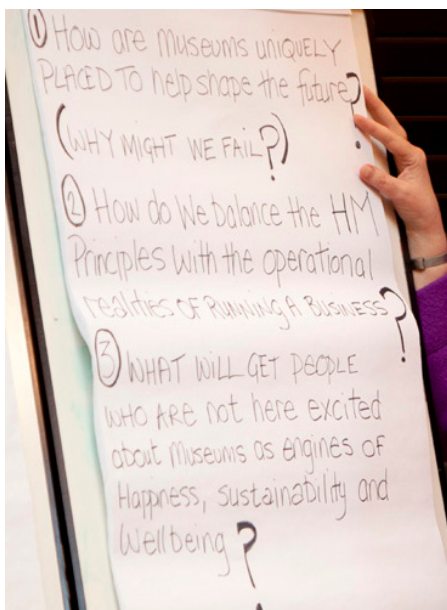 ① HOW are museums UNIQUELY
PLACED TO help shape the future?
(WHY MIGHT WE FAIL?)
② HOW do We balance the HM
Principles with the operational
realities OF RUNNING A BUSINESS?
③ WHAT WILL GET PEOPLE
WHO ARE not here excited
about Museums as engines of
Happiness, sustainability and
Wellbeing?